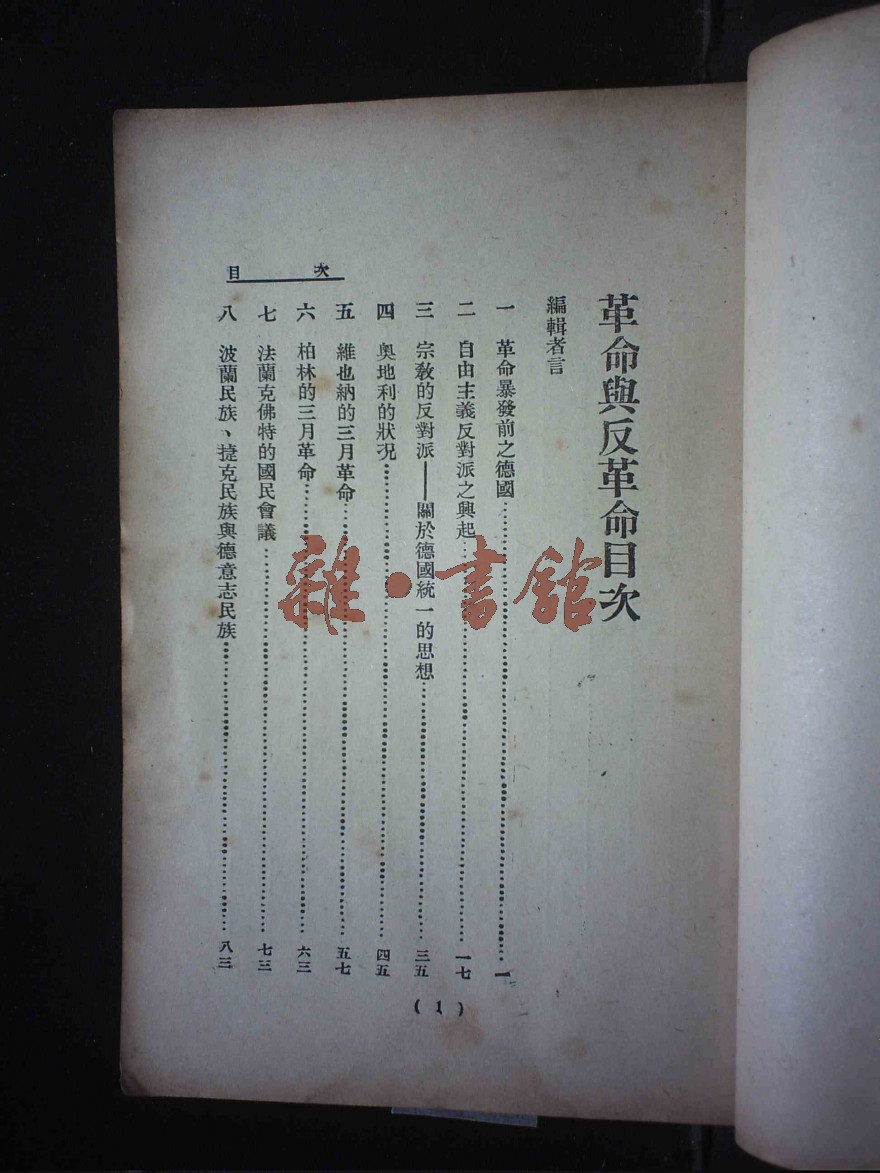 革命與反革命目次
編輯者言
一 革命暴發前之德國 一
二 自由主義反對派之興起 一七
三 宗教的反對派——關於德國統一的思想 三五
四 奧地利的狀況 四五
五 維也納的三月革命 五七
六 柏林的三月革命 六三
七 法蘭克佛特的國民會議 七三
八 波蘭民族、捷克民族與德意志民族 八三
目次
(1)
雜·書館